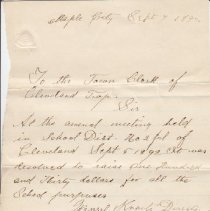 Maple City Sept 7 1892
To the Town Clerk of
Cleveland Twp.
Sir
At the annual meeting held
in School Dist. No 3 frl of
Cleveland Sept 5 1892 it was
resolved to raise One Hundred
and Thirty dollars for all the
School purposes